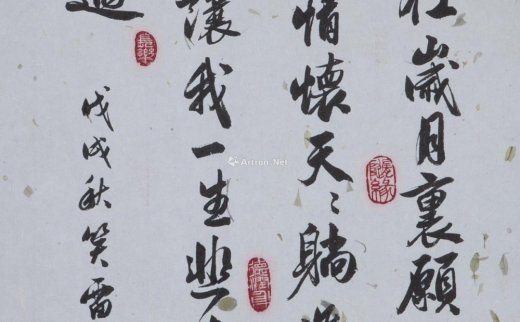 歲月裏願
情懷天天躺
讓我一生悲
戊戌秋笑雷
Artron.Net